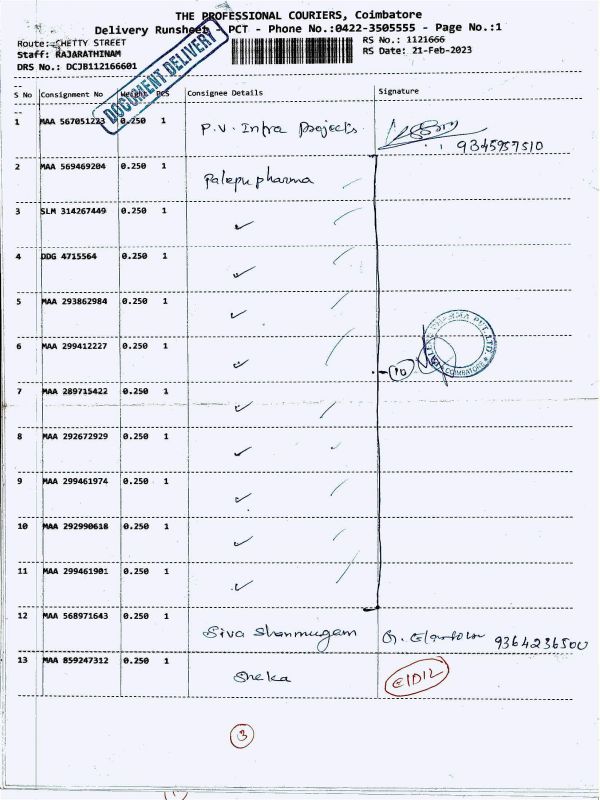 THE PROFESSIONAL COURIERS, Coimbatore
Delivery Runsheet - PCT - Phone No.:0422-3505555 - Page No.:1
Route: CHETTY STREET RS No.: 1121666
Staff: RAJARATHINAM RS Date: 21-Feb-2023
DRS No.: DCJB112166601
DOCUMENT DELIVERY
S No Consignment No Weight PCS Consignee Details Signature
1 MAA 567051223 0.250 1 P.V. Infra Projects
9345957510
2 MAA 569469204 0.250 1 Palepu pharma
3 SLM 314267449 0.250 1 ✓
4 DDG 4715564 0.250 1 ✓
5 MAA 293862984 0.250 1 ✓
6 MAA 299412227 0.250 1 ✓
10
PHARMA PVT. LTD. COIMBATORE
7 MAA 289715422 0.250 1 ✓
8 MAA 292672929 0.250 1 ✓
9 MAA 299461974 0.250 1 ✓
10 MAA 292990618 0.250 1 ✓
11 MAA 299461901 0.250 1 ✓
12 MAA 568971643 0.250 1 Siva Shanmugam 9364236500
13 MAA 859247312 0.250 1 Sneka
3